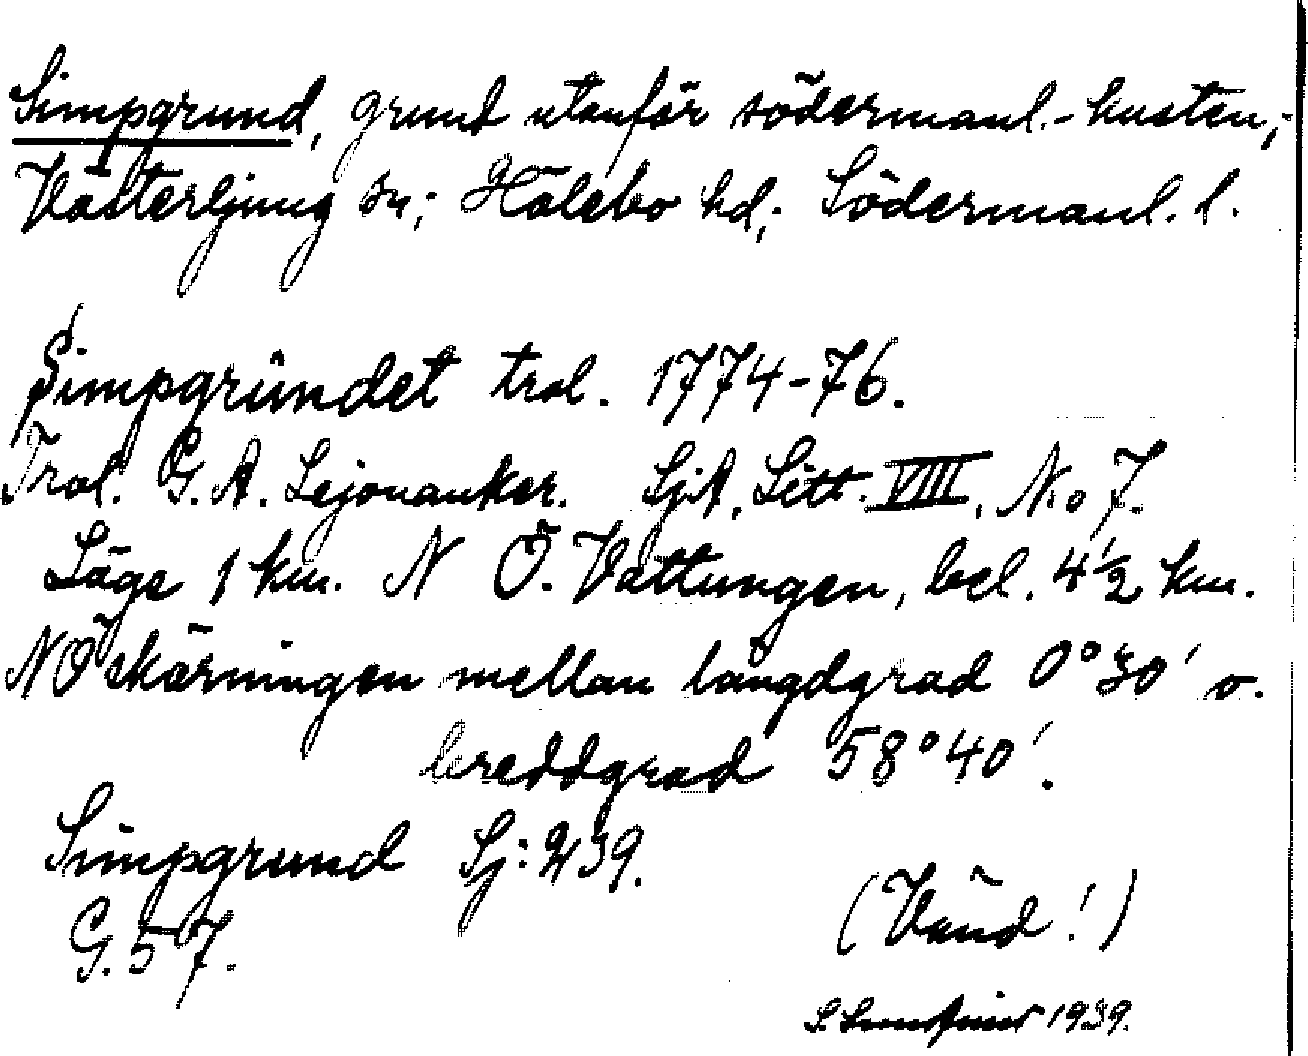 Simpgrund, grund utanför södermanl.-kusten,;
Västerljung sn; Hölebo hd; Södermanl. l.
Simpgrundet trol. 1774-76.
Trol. G. A. Lejonanker. SjA, Litt. VIII, No 7.
Läge 1 km. N Ö. Vattungen, bel. 4½ km.
NÖ skärningen mellan längdgrad 0° 30' o.
breddgrad 58° 40'.
Simpgrund Sj: 239.
G. 57.
(Vänd!)
1939.